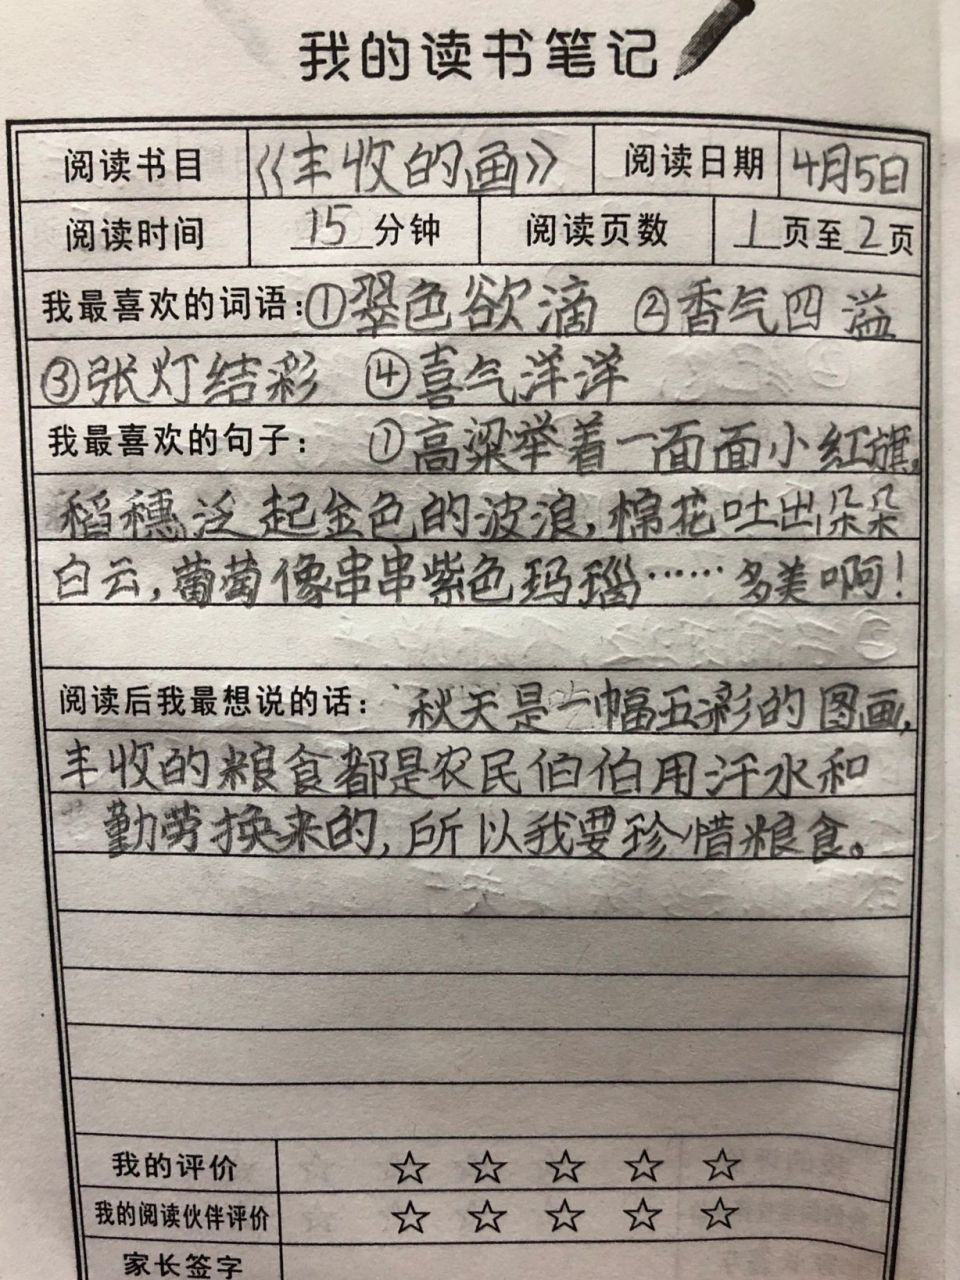 我的读书笔记
阅读书目 《丰收的画》 阅读日期 4月5日
阅读时间 15分钟 阅读页数 1页至2页
我最喜欢的词语:①翠色欲滴 ②香气四溢
③张灯结彩 ④喜气洋洋
我最喜欢的句子: ①高粱举着一面面小红旗,
稻穗泛起金色的波浪,棉花吐出朵朵
白云,葡萄像串串紫色玛瑙……多美啊!
阅读后我最想说的话: 秋天是一幅五彩的图画,
丰收的粮食都是农民伯伯用汗水和
勤劳换来的,所以我要珍惜粮食。
我的评价 ☆ ☆ ☆ ☆ ☆
我的阅读伙伴评价 ☆ ☆ ☆ ☆ ☆
家长签字